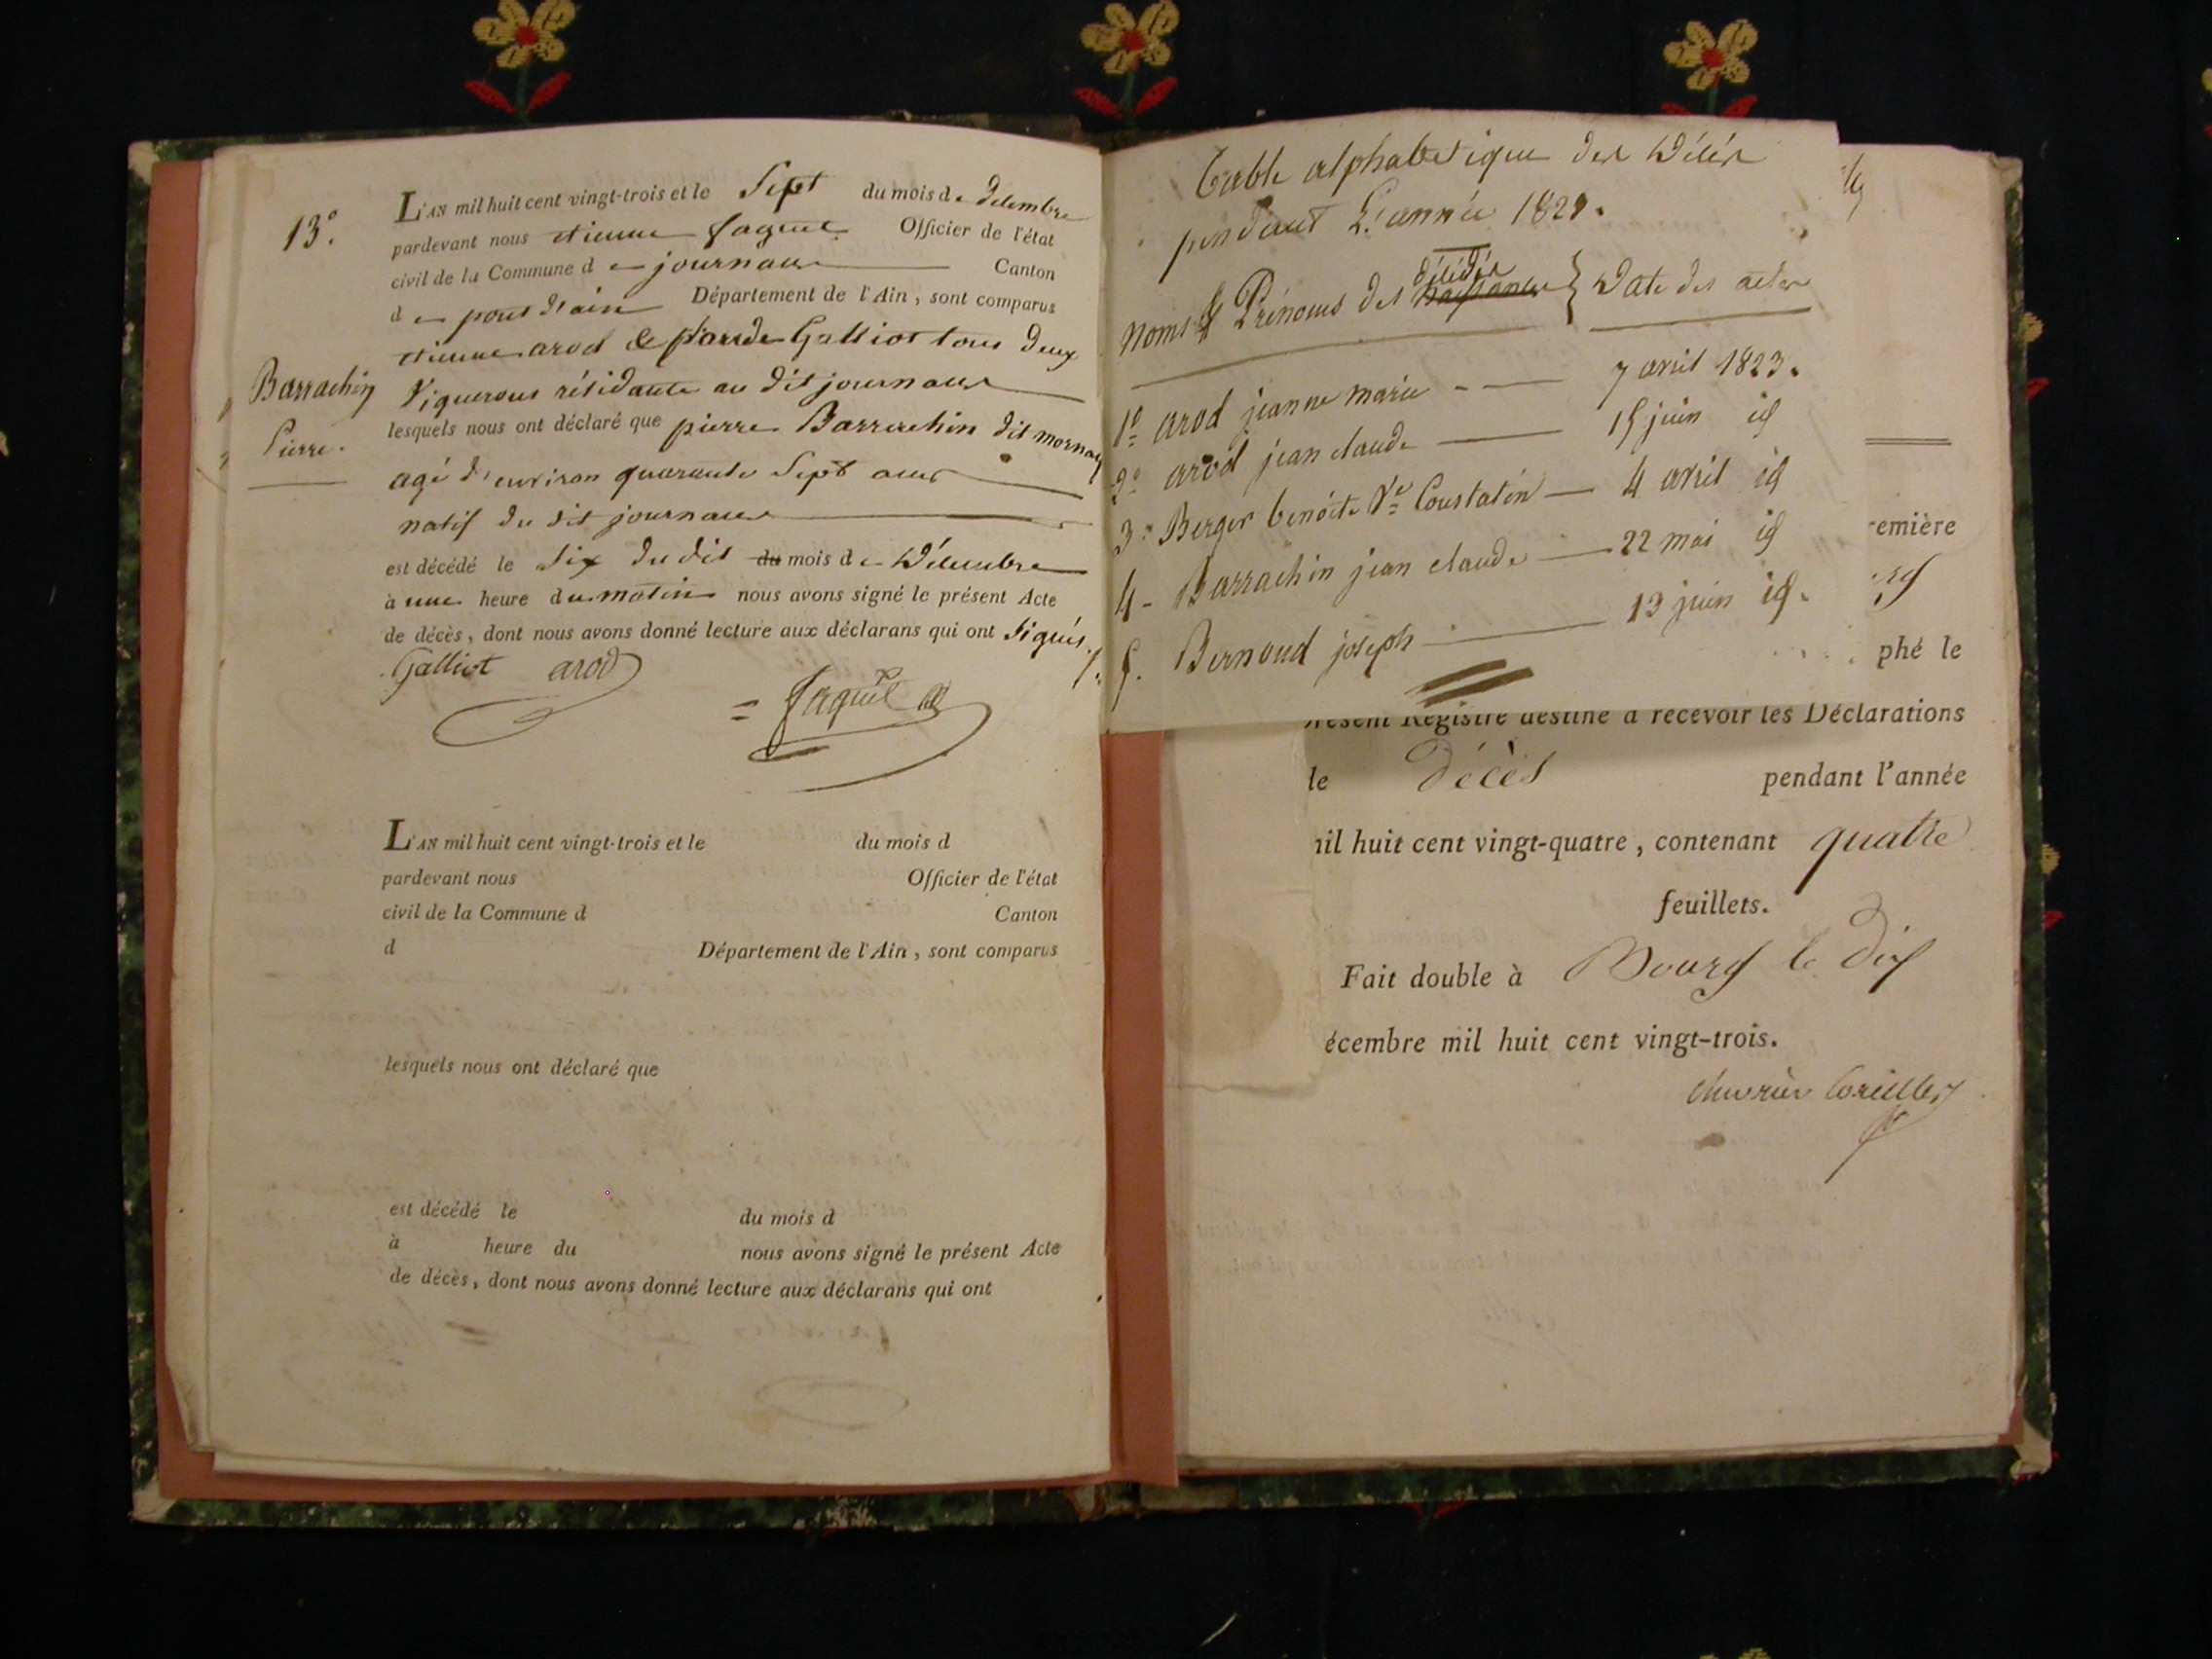 13°.
Barrachin
Pierre.
L'AN mil huit cent vingt-trois et le Sept du mois de décembre
pardevant nous etienne Faguet Officier de l'état
civil de la Commune de journans Canton
de pont d'ain Département de l'Ain, sont comparus
etienne arod & Claude Galliot tous deux
Vignerons résidants au dit journans
lesquels nous ont déclaré que pierre Barrachin dit mornay
agé d'environ quarante Sept ans
natif du dit journans
est décédé le Six du dit du mois de Décembre
à une heure du matin nous avons signé le présent Acte
de décès, dont nous avons donné lecture aux déclarans qui ont Signés.
Galliot arod
L'AN mil huit cent vingt-trois et le du mois d
pardevant nous Officier de l'état
civil de la Commune d Canton
d Département de l'Ain, sont comparus
lesquels nous ont déclaré que
est décédé le du mois d
à heure du nous avons signé le présent Acte
de décès, dont nous avons donné lecture aux déclarans qui ont
Table alphabetique des Décés
pendant L'année 1823.
décédés
Noms & Prénoms des naissances } Date des actes
1° arod jeanne marie - — 7 avril 1823.
2° arod jean claude — 15 juin id
3° Berger benoite Ve Coustatin — 4 avril id
4 - Barrachin jean claude — 22 mai id
5. Bernoud joseph — 13 juin id.
emière
phé le
présent Registre destiné à recevoir les Déclarations
le Décès pendant l'année
mil huit cent vingt-quatre, contenant quatre
feuillets.
Fait double à Bourg le dix
écembre mil huit cent vingt-trois.